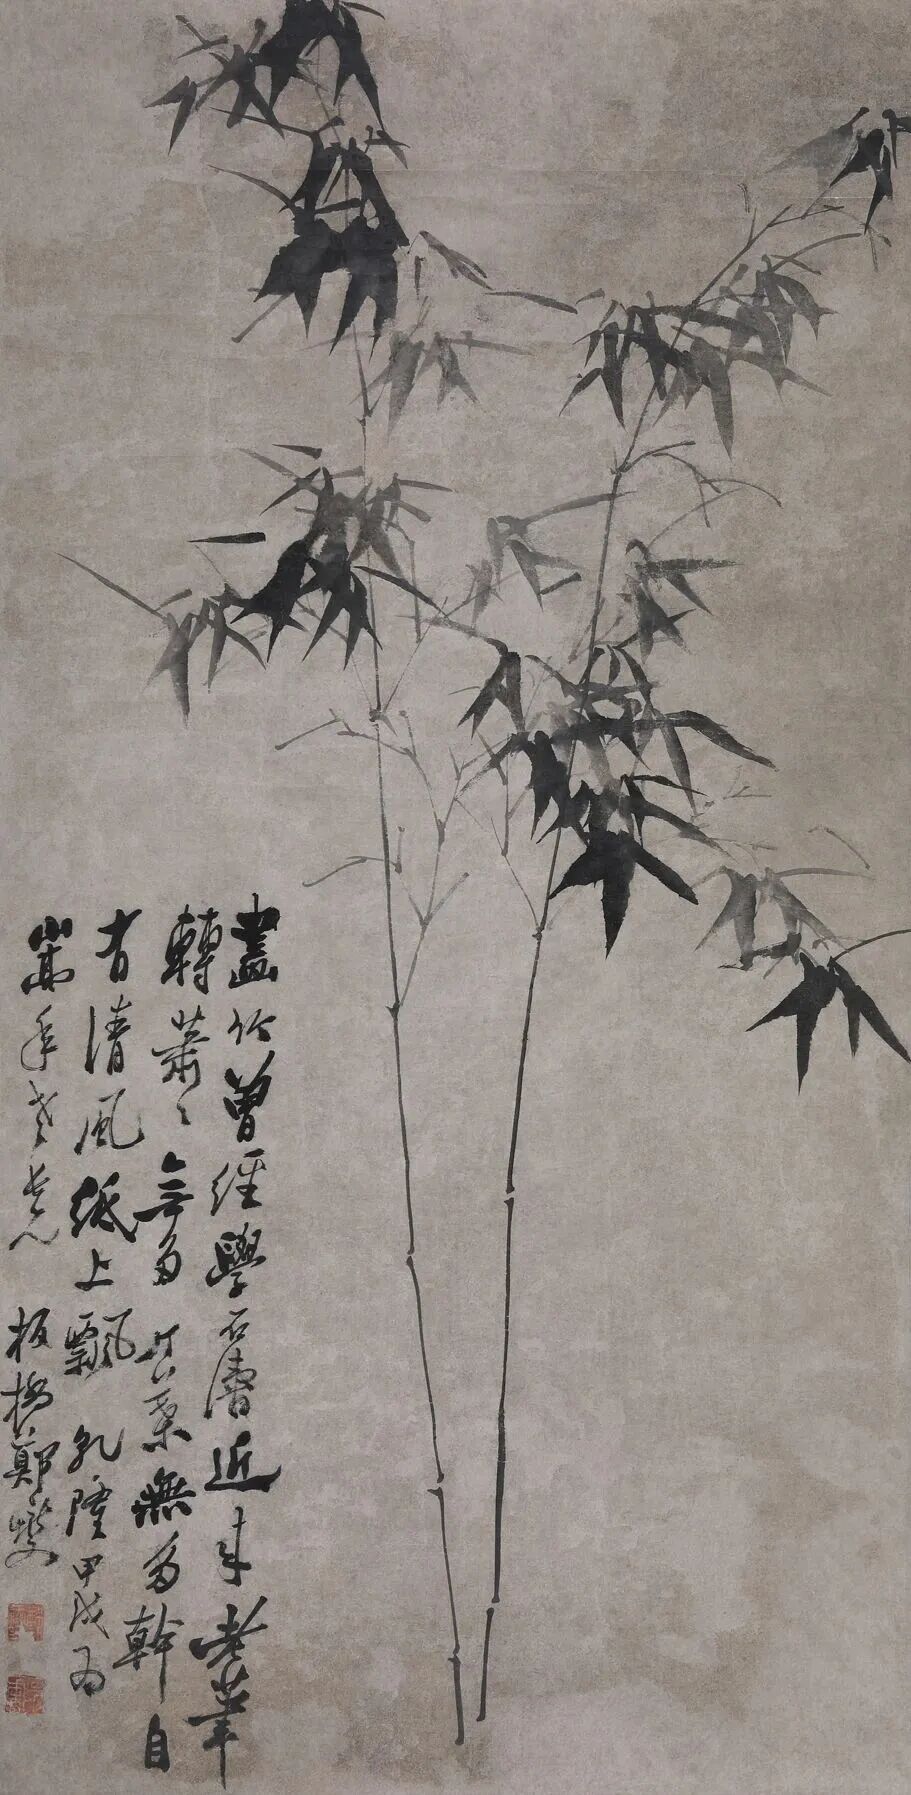 畫竹曾經學石濤近来老筆
轉蕭〻無多竹葉無多幹自
有清風紙上飄 乾隆甲戌為
嵩年老長兄 板橋鄭燮